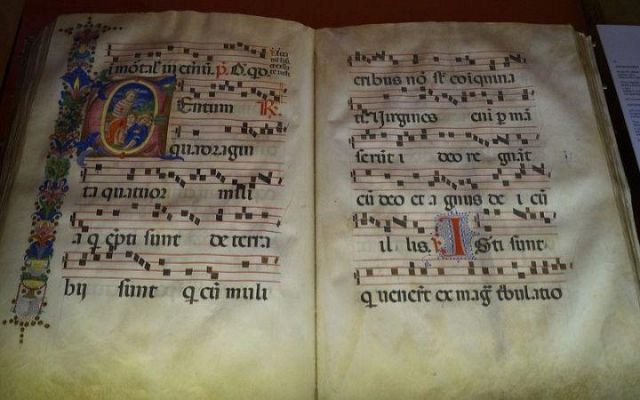 in monte
Entum
R.
quadragin
ta quatuor mili
a q sunt de terra
hij sunt q cū muli
eribus nō st coinqina
ti Virgines enī p mā
serūt i deo re gnāt
cū deo et a gnus de i cū
il lis. Isti sunt
q venerūt ex mag tbulatio